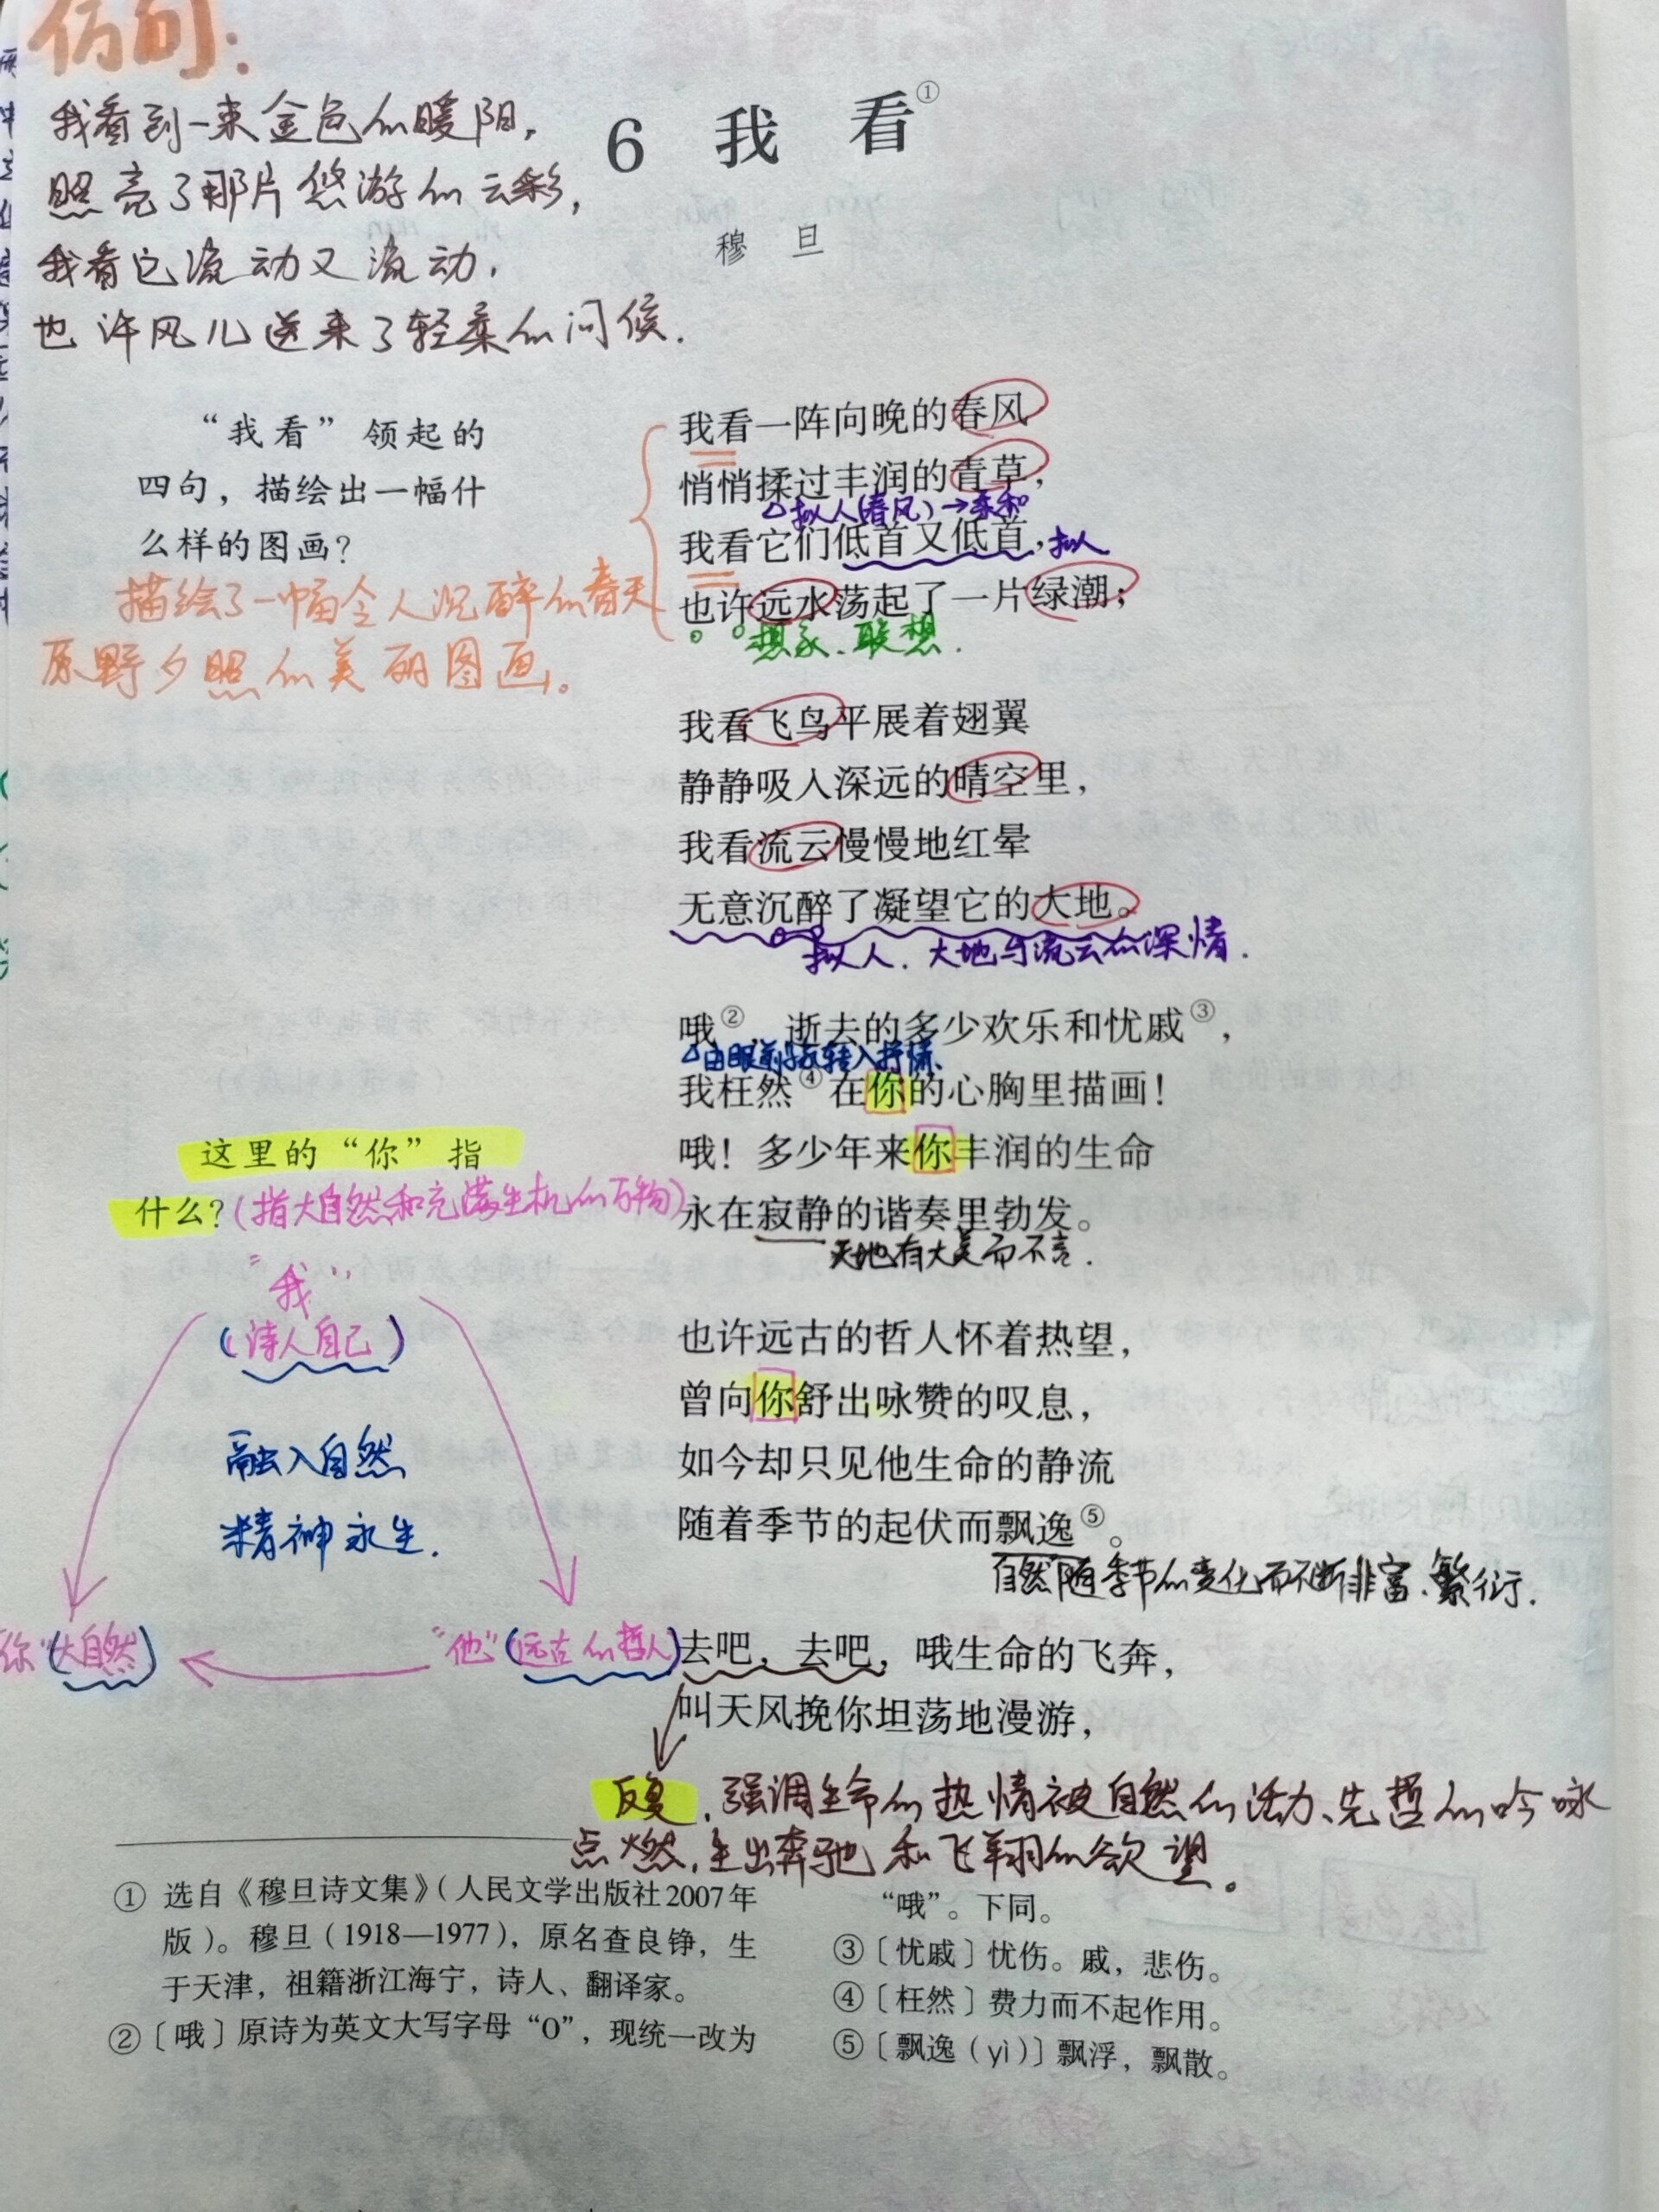 仿句：
我看到一束金色的暖阳，
照亮了那片悠游的云彩，
我看它流动又流动，
也许风儿送来了轻柔的问候．
6 我 看①
穆 旦
“我看”领起的
四句，描绘出一幅什
么样的图画？
描绘了一幅令人沉醉的春天
原野夕照的美丽图画。
我看一阵向晚的春风
悄悄揉过丰润的青草，
△拟人(春风)→柔和
我看它们低首又低首，拟人
也许远水荡起了一片绿潮；
想象、联想．
我看飞鸟平展着翅翼
静静吸入深远的晴空里，
我看流云慢慢地红晕
无意沉醉了凝望它的大地。
拟人．大地与流云的深情．
哦②，逝去的多少欢乐和忧戚③，
△由眼前景转入抒情、
我枉然④在你的心胸里描画！
哦！多少年来你丰润的生命
永在寂静的谐奏里勃发。
天地有大美而不言．
这里的“你”指
什么？(指大自然和充满生机的万物)
“我”
(诗人自己)
融入自然
精神永生．
你“(大自然)
“他”(远古的哲人)
也许远古的哲人怀着热望，
曾向你舒出咏赞的叹息，
如今却只见他生命的静流
随着季节的起伏而飘逸⑤。
自然随季节的变化而不断非富、繁衍．
去吧，去吧，哦生命的飞奔，
叫天风挽你坦荡地漫游，
反复．强调生命的热情被自然的活力、先哲的吟咏
点燃，生出奔驰和飞翔的欲望。
① 选自《穆旦诗文集》（人民文学出版社2007年
版）。穆旦（1918—1977），原名查良铮，生
于天津，祖籍浙江海宁，诗人、翻译家。
②〔哦〕原诗为英文大写字母“O”，现统一改为
“哦”。下同。
③〔忧戚〕忧伤。戚，悲伤。
④〔枉然〕费力而不起作用。
⑤〔飘逸（yì）〕飘浮，飘散。